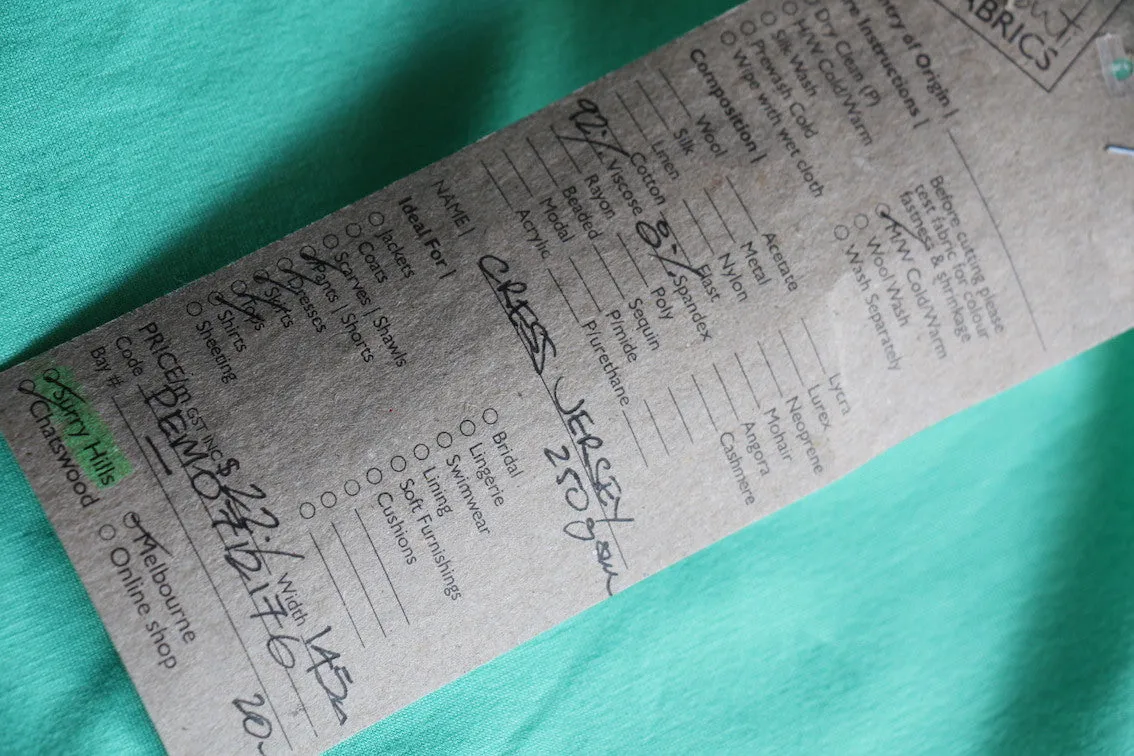 FABRICS
ry of Origin |
re Instructions |
Dry Clean (P)
H/W Cold/Warm
Silk Wash
Prewash Cold
Wipe with wet cloth
Before cutting please
test fabric for colour
fastness & shrinkage
M/W Cold/Warm
Wool Wash
Wash Separately
Composition |
Wool
Silk
Linen
Cotton
92% Viscose
Rayon
Beaded
Modal
Acrylic
Acetate
Metal
Nylon
Elast
8% Spandex
Poly
Sequin
P/mide
P/urethane
Lycra
Lurex
Neoprene
Mohair
Angora
Cashmere
NAME | CRESS JERSEY
250gsm
Ideal For |
Jackets
Coats
Scarves | Shawls
Pants | Shorts
Dresses
Skirts
Tops
Shirts
Sheeting
Bridal
Lingerie
Swimwear
Lining
Soft Furnishings
Cushions
PRICE/m GST INC $22.- Width 145
Code
Bay #
20-
Surry Hills
Chatswood
Melbourne
Online shop